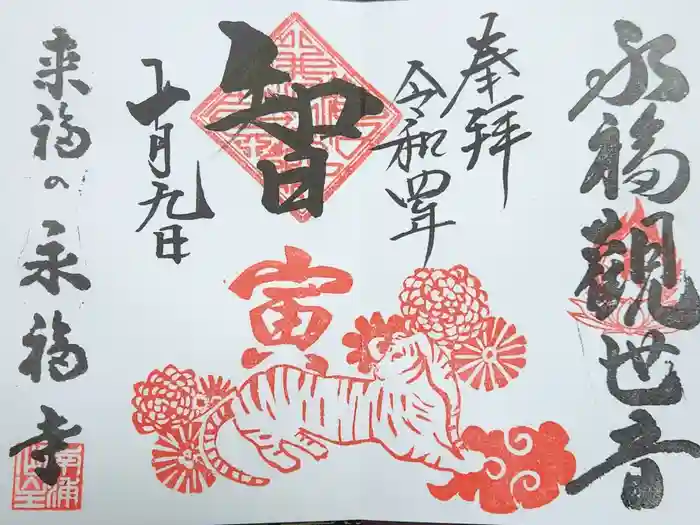 永福觀世音
奉拝
令和四年
智
十一月九日
寅
来福の永福寺